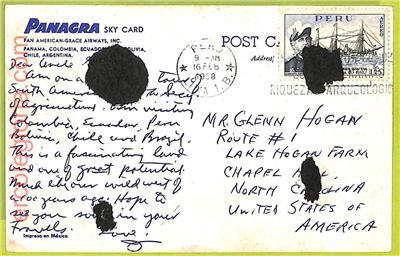 PANAGRA SKY CARD
PAN AMERICAN-GRACE AIRWAYS, INC.
PANAMA, COLOMBIA, ECUADOR, BOLIVIA,
CHILE, ARGENTINA.
POST C
Address
PERU
9 - AM
16 FEB
1958
PERU
AEREO
RIQUEZA ARQUEOLOGIC
Dear Uncle
Am on a tour
South America
of agriculture. Am visiting
Colombia, Ecuador, Peru
Bolivia, Chile and Brazil.
This is a fascinating land
and one of great potential.
Much like our wild west of
100 years ago. Hope to
see you soon in your
travels. Love,
MR. GLENN HOGAN
ROUTE #1
LAKE HOGAN FARM
CHAPEL
NORTH CAROLINA
UNITED STATES OF
AMERICA
Impreso en México